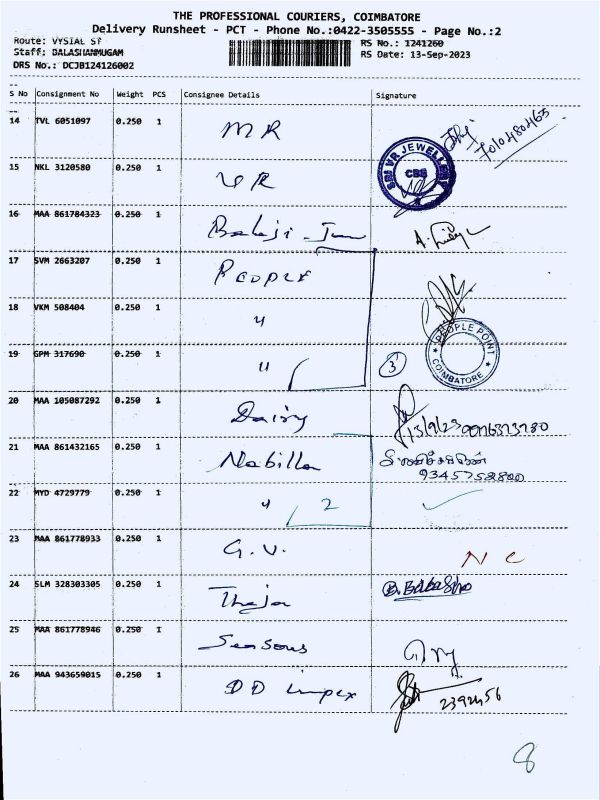 THE PROFESSIONAL COURIERS, COIMBATORE
Delivery Runsheet - PCT - Phone No.:0422-3505555 - Page No.:2
Route: VYSIAL ST
RS No.: 1241260
Staff: BALASHANMUGAM
RS Date: 13-Sep-2023
DRS No.: DCJB124126002
S No Consignment No Weight PCS Consignee Details Signature
14 TVL 6051097 0.250 1 MR
15 NKL 3120580 0.250 1 VR SRI VR JEWELLERY CBE
16 MAA 861784323 0.250 1 Balaji
17 SVM 2663207 0.250 1 People
18 VKM 508404 0.250 1 "
PEOPLE POINT COIMBATORE
19 GPM 317690 0.250 1 " 3
20 MAA 105087292 0.250 1 Dairy 13/9/23
21 MAA 861432165 0.250 1 Nabilla
22 MYD 4729779 0.250 1 " 2 ✓
23 MAA 861778933 0.250 1 G.V. N C
24 SLM 328303305 0.250 1 Theja
25 MAA 861778946 0.250 1 Seasons
26 MAA 943659015 0.250 1 DD impex 2392456
8